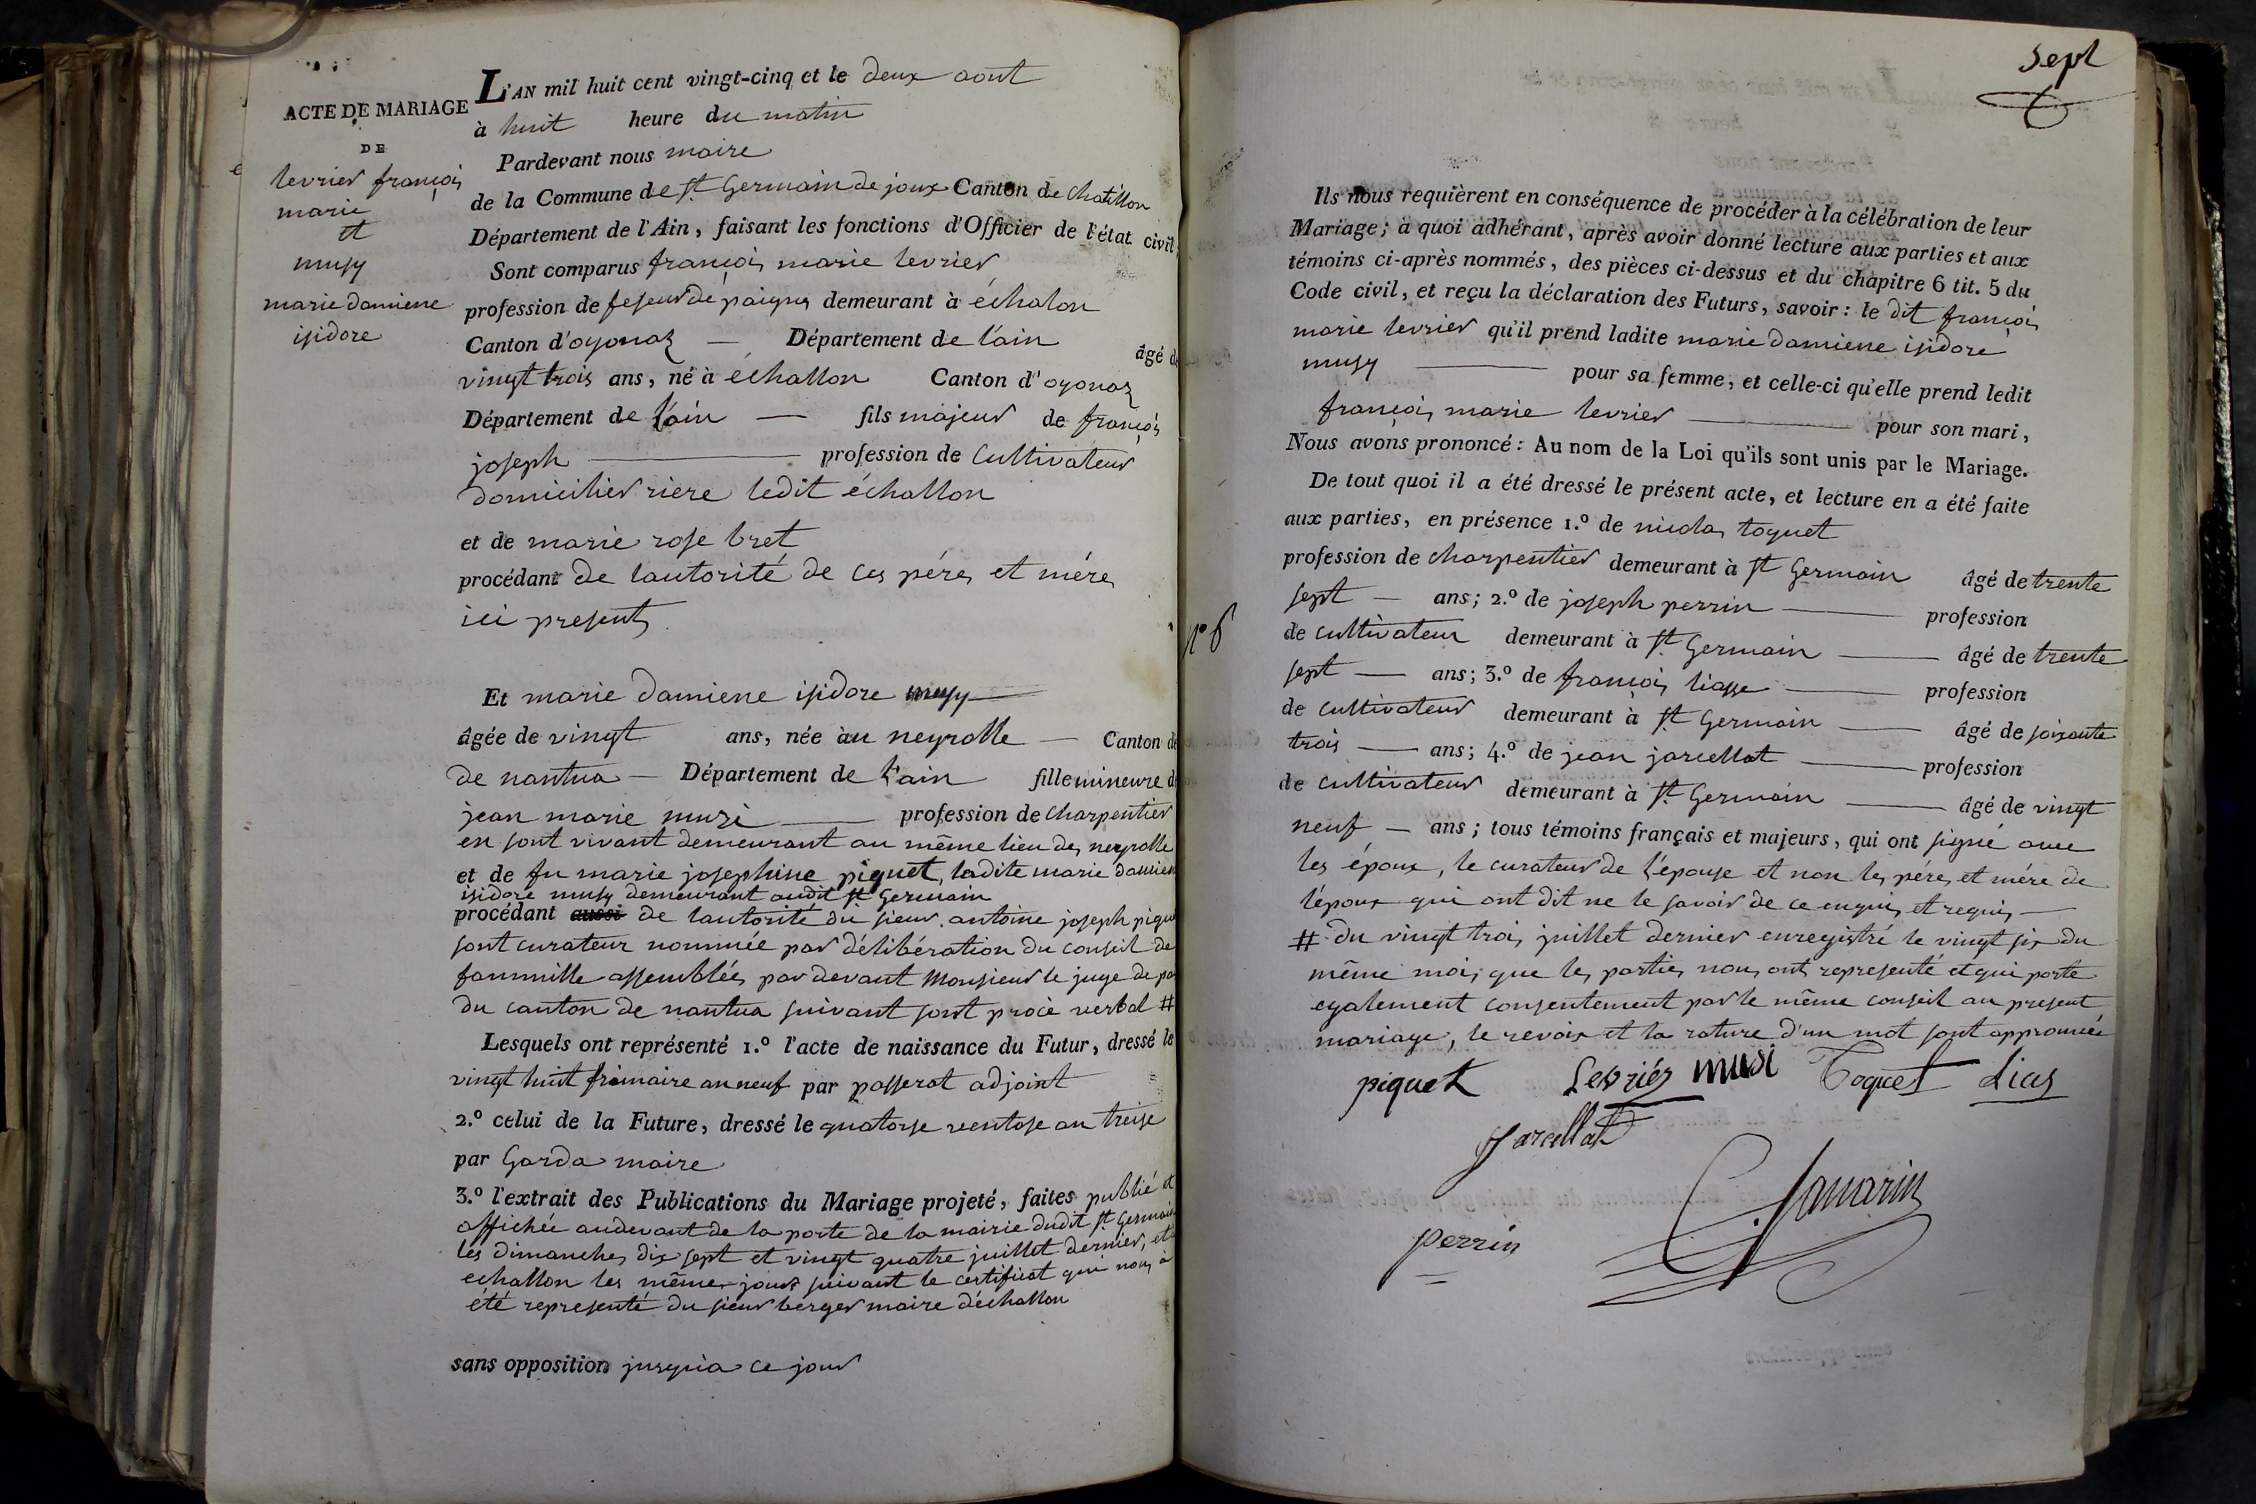 ACTE DE MARIAGE
DE
levrier françois
marie
et
musy
marie damiene
isidore
L'AN mil huit cent vingt-cinq et le deux aout
à huit heure du matin
Pardevant nous maire
de la Commune de st Germain de joux Canton de chatillon
Département de l'Ain, faisant les fonctions d'Officier de l'état civil,
Sont comparus françois marie levrier
profession de feseur de paignes demeurant à échalon
Canton d'oyonaz — Département de l'ain âgé de
vingt trois ans, né à échallon Canton d'oyonaz
Département de l'ain — fils majeur de françois
joseph — profession de Cultivateur
domicilier riere ledit échallon
et de marie rose bret
procédant de lautorité de ces pére et mére
ici presents
Et marie damiene isidore musy
âgée de vingt ans, née au neyrolle — Canton de
de nantua — Département de l'ain fille mineure de
jean marie muzi — profession de charpentier
en sont vivant demeurant au même lieu des neyrolle
et de fu marie josephine piquet, ladite marie damien
isidore musy demeurant audit st Germain
procédant aussi de lautorité du sieur antoine joseph pique
sont curateur nommée par délibération du conseil de
fammille assemblée par devant Monsieur le juge de pa
du canton de nantua suivant sont procè verbal #
Lesquels ont représenté 1.º l'acte de naissance du Futur, dressé le
vingt huit frimaire an neuf par passerat adjoint
2.º celui de la Future, dressé le quatorse ventose an treise
par Garda maire
3.º l'extrait des Publications du Mariage projeté, faites publié et
affichée audevant de la porte de la mairie dudit st Germain
les dimanches dix sept et vingt quatre juillet dernier, et à
echallon les même jours suivant le certificat qui nous à
été representé du sieur berger maire d'échallon
sans opposition jusqu'a ce jour
Sept
nº 6
Ils nous requièrent en conséquence de procéder à la célébration de leur
Mariage; à quoi adhérant, après avoir donné lecture aux parties et aux
témoins ci-après nommés, des pièces ci-dessus et du chapitre 6 tit. 5 du
Code civil, et reçu la déclaration des Futurs, savoir: le dit françois
marie levrier qu'il prend ladite marie damiene isidore
musy — pour sa femme, et celle-ci qu'elle prend ledit
françois marie levrier — pour son mari,
Nous avons prononcé: Au nom de la Loi qu'ils sont unis par le Mariage.
De tout quoi il a été dressé le présent acte, et lecture en a été faite
aux parties, en présence 1.º de nicolas toquet
profession de charpentier demeurant à st Germain âgé de trente
sept — ans; 2.º de joseph perrin — profession
de cultivateur demeurant à st Germain — âgé de trente
sept — ans; 3.º de françois liasse — profession
de cultivateur demeurant à st Germain — âgé de soixante
trois — ans; 4.º de jean jarcellat — profession
de cultivateur demeurant à st Germain — âgé de vingt
neuf — ans; tous témoins français et majeurs, qui ont signé avec
les époux, le curateur de l'épouse et non les pére et mére de
l'époux qui ont dit ne le savoir de ce enquis et requis —
# du vingt trois juillet dernier enregistré le vingt six du
même mois que les parties nous ont representé et qui porte
egalement consentement par le même conseil au present
mariage, le revois et la rature d'un mot sont approuvée
piquet Levriér musi Toquet Lias
Jarcellat
perrin